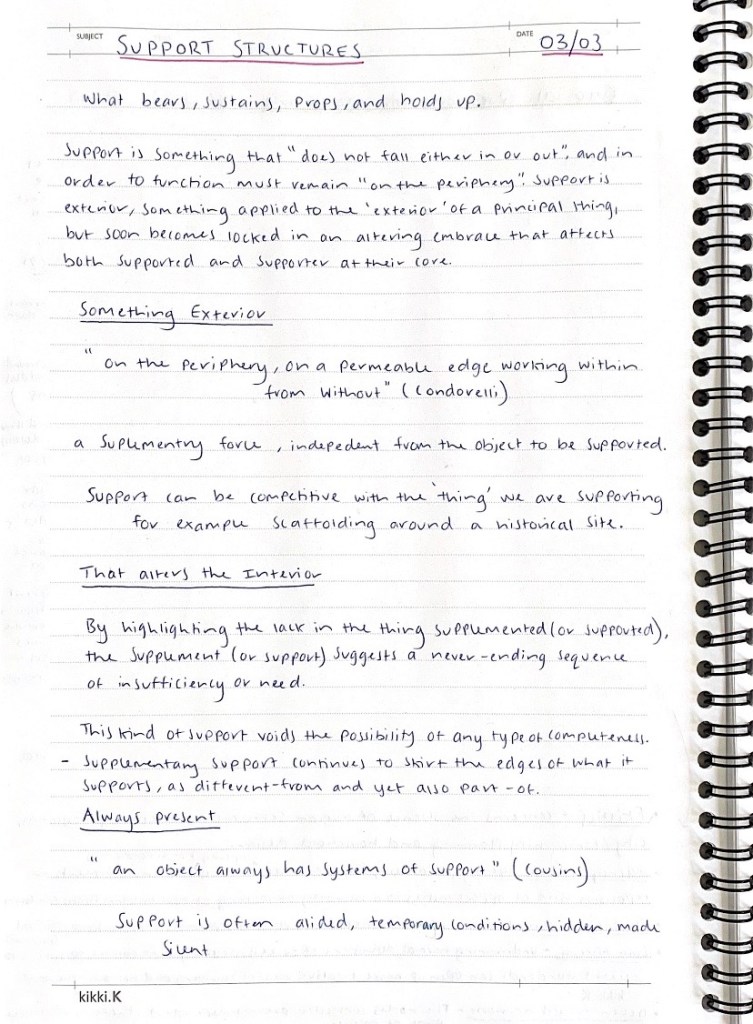 SUBJECT SUPPORT STRUCTURES DATE 03/03
What bears, sustains, props, and holds up.
Support is something that "does not fall either in or out", and in
order to function must remain "on the periphery". Support is
exterior, something applied to the 'exterior' of a principal thing,
but soon becomes locked in an altering embrace that affects
both supported and supporter at their core.
Something Exterior
" on the periphery, on a permeable edge working within
from without" (Condorelli)
a suplementry force , indepedent from the object to be supported.
Support can be competitive with the 'thing' we are supporting
for example scaffolding around a historical site.
That alters the Interior
By highlighting the lack in the thing supplemented (or supported),
the supplement (or support) suggests a never-ending sequence
of insufficiency or need.
This kind of support voids the possibility of any type of completeness.
- Supplementary support continues to skirt the edges of what it
supports, as different-from and yet also part-of.
Always present
" an object always has systems of support" (Cousins)
Support is often alided, temporary conditions, hidden, made
silent
kikki.K